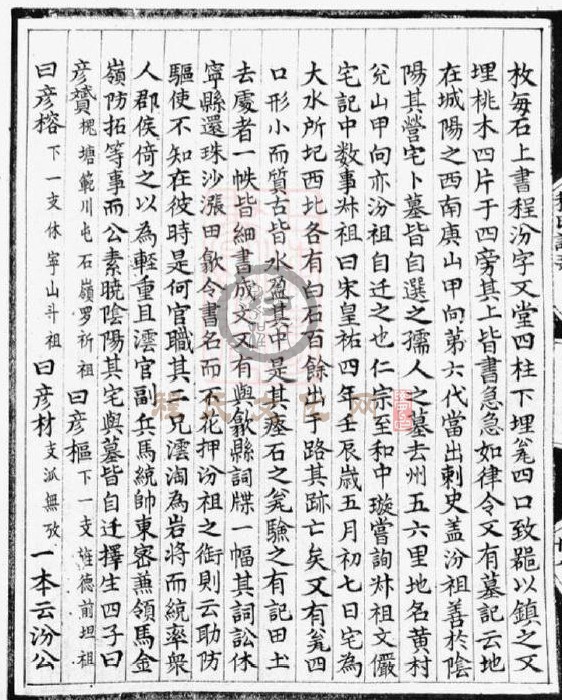 枚每石上書程汾字又堂四柱下埋瓮四口致罷以鎮之又
埋桃木四片于四旁其上皆書急急如律令又有墓記云地
在城陽之西南庚山甲向第六代當出刺史蓋汾祖善於陰
陽其營宅卜墓皆自選之孺人之墓去州五六里地名黄村
兊山甲向亦汾祖自迁之也仁宗至和中璇嘗詢叔祖文儼
宅記中数事叔祖曰宋皇祐四年壬辰歲五月初七日宅為
大水所圮西北各有白石百餘出于路其跡亡矣又有瓮四
口形小而質古皆水盈其中是其瘗石之瓮驗之有記田土
去處者一帙皆細書成文又有與歙縣詞牒一幅其詞訟休
寧縣還珠沙漲田歙令書名而石花押汾祖之銜則云助防
驅使不知在彼時是何官職其二兄澐淘為岩將而統率衆
人郡侯倚之以為輕重且澐官副兵馬統帥東密兼領馬金
嶺防拓等事而公素曉陰陽其宅與墓皆自迁擇生四子曰
彦贇槐塘範川屯石嶺罗祈祖 曰彦樞下一支旌德前坦祖
曰彦榕下一支休寧山斗祖 曰彦材支派無攷 一本云汾公
程氏文化网